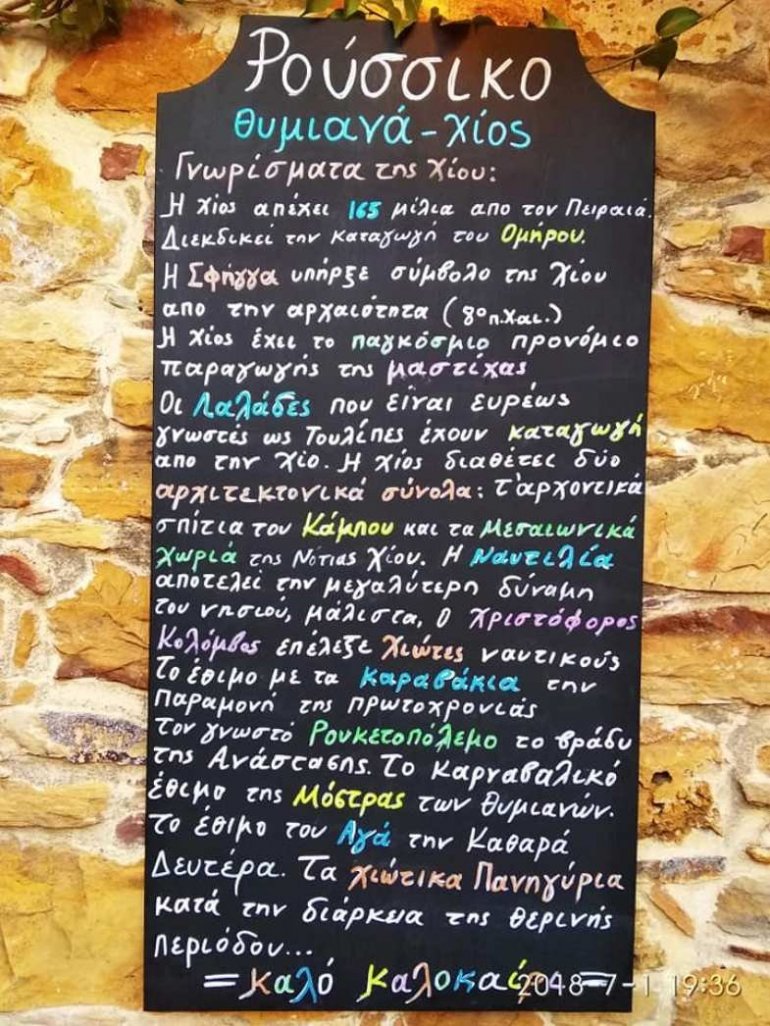 Ρούσσικο
θυμιανά - χίος
Γνωρίσματα της Χίου:
Η Χίος απέχει 165 μίλια απο τον Πειραιά.
Διεκδικεί την καταγωγή του Ομήρου.
Η Σφήγγα υπήρξε σύμβολο της Χίου
απο την αρχαιότητα (8ο π.χαι.)
Η Χίος έχει το παγκόσμιο προνόμιο
παραγωγής της μαστίχας
Οι Λαλάδες που είναι ευρέως
γνωστές ως Τουλίπες έχουν καταγωγή
απο την Χίο. Η Χίος διαθέτει δύο
αρχιτεκτονικά σύνολα: τ'αρχοντικά
σπίτια του Κάμπου και τα Μεσαιωνικά
χωριά της Νότιας Χίου. Η Ναυτιλία
αποτελεί την μεγαλύτερη δύναμη
του νησιού, μάλιστα, ο Χριστόφορος
Κολόμβος επέλεξε Χιώτες ναυτικούς
Το έθιμο με τα Καραβάκια την
Παραμονή της πρωτοχρονιάς
Τον γνωστό Ρουκετοπόλεμο το βράδυ
της Ανάστασης. Το Καρναβαλικό
έθιμο της Μόστρας των θυμιανών.
Το έθιμο του Αγά την Καθαρά
Δευτέρα. Τα χιώτικα Πανηγύρια
κατά την διάρκεια της θερινής
περιόδου...
= Καλό Καλοκαίρι =
2018-7-1 19:36